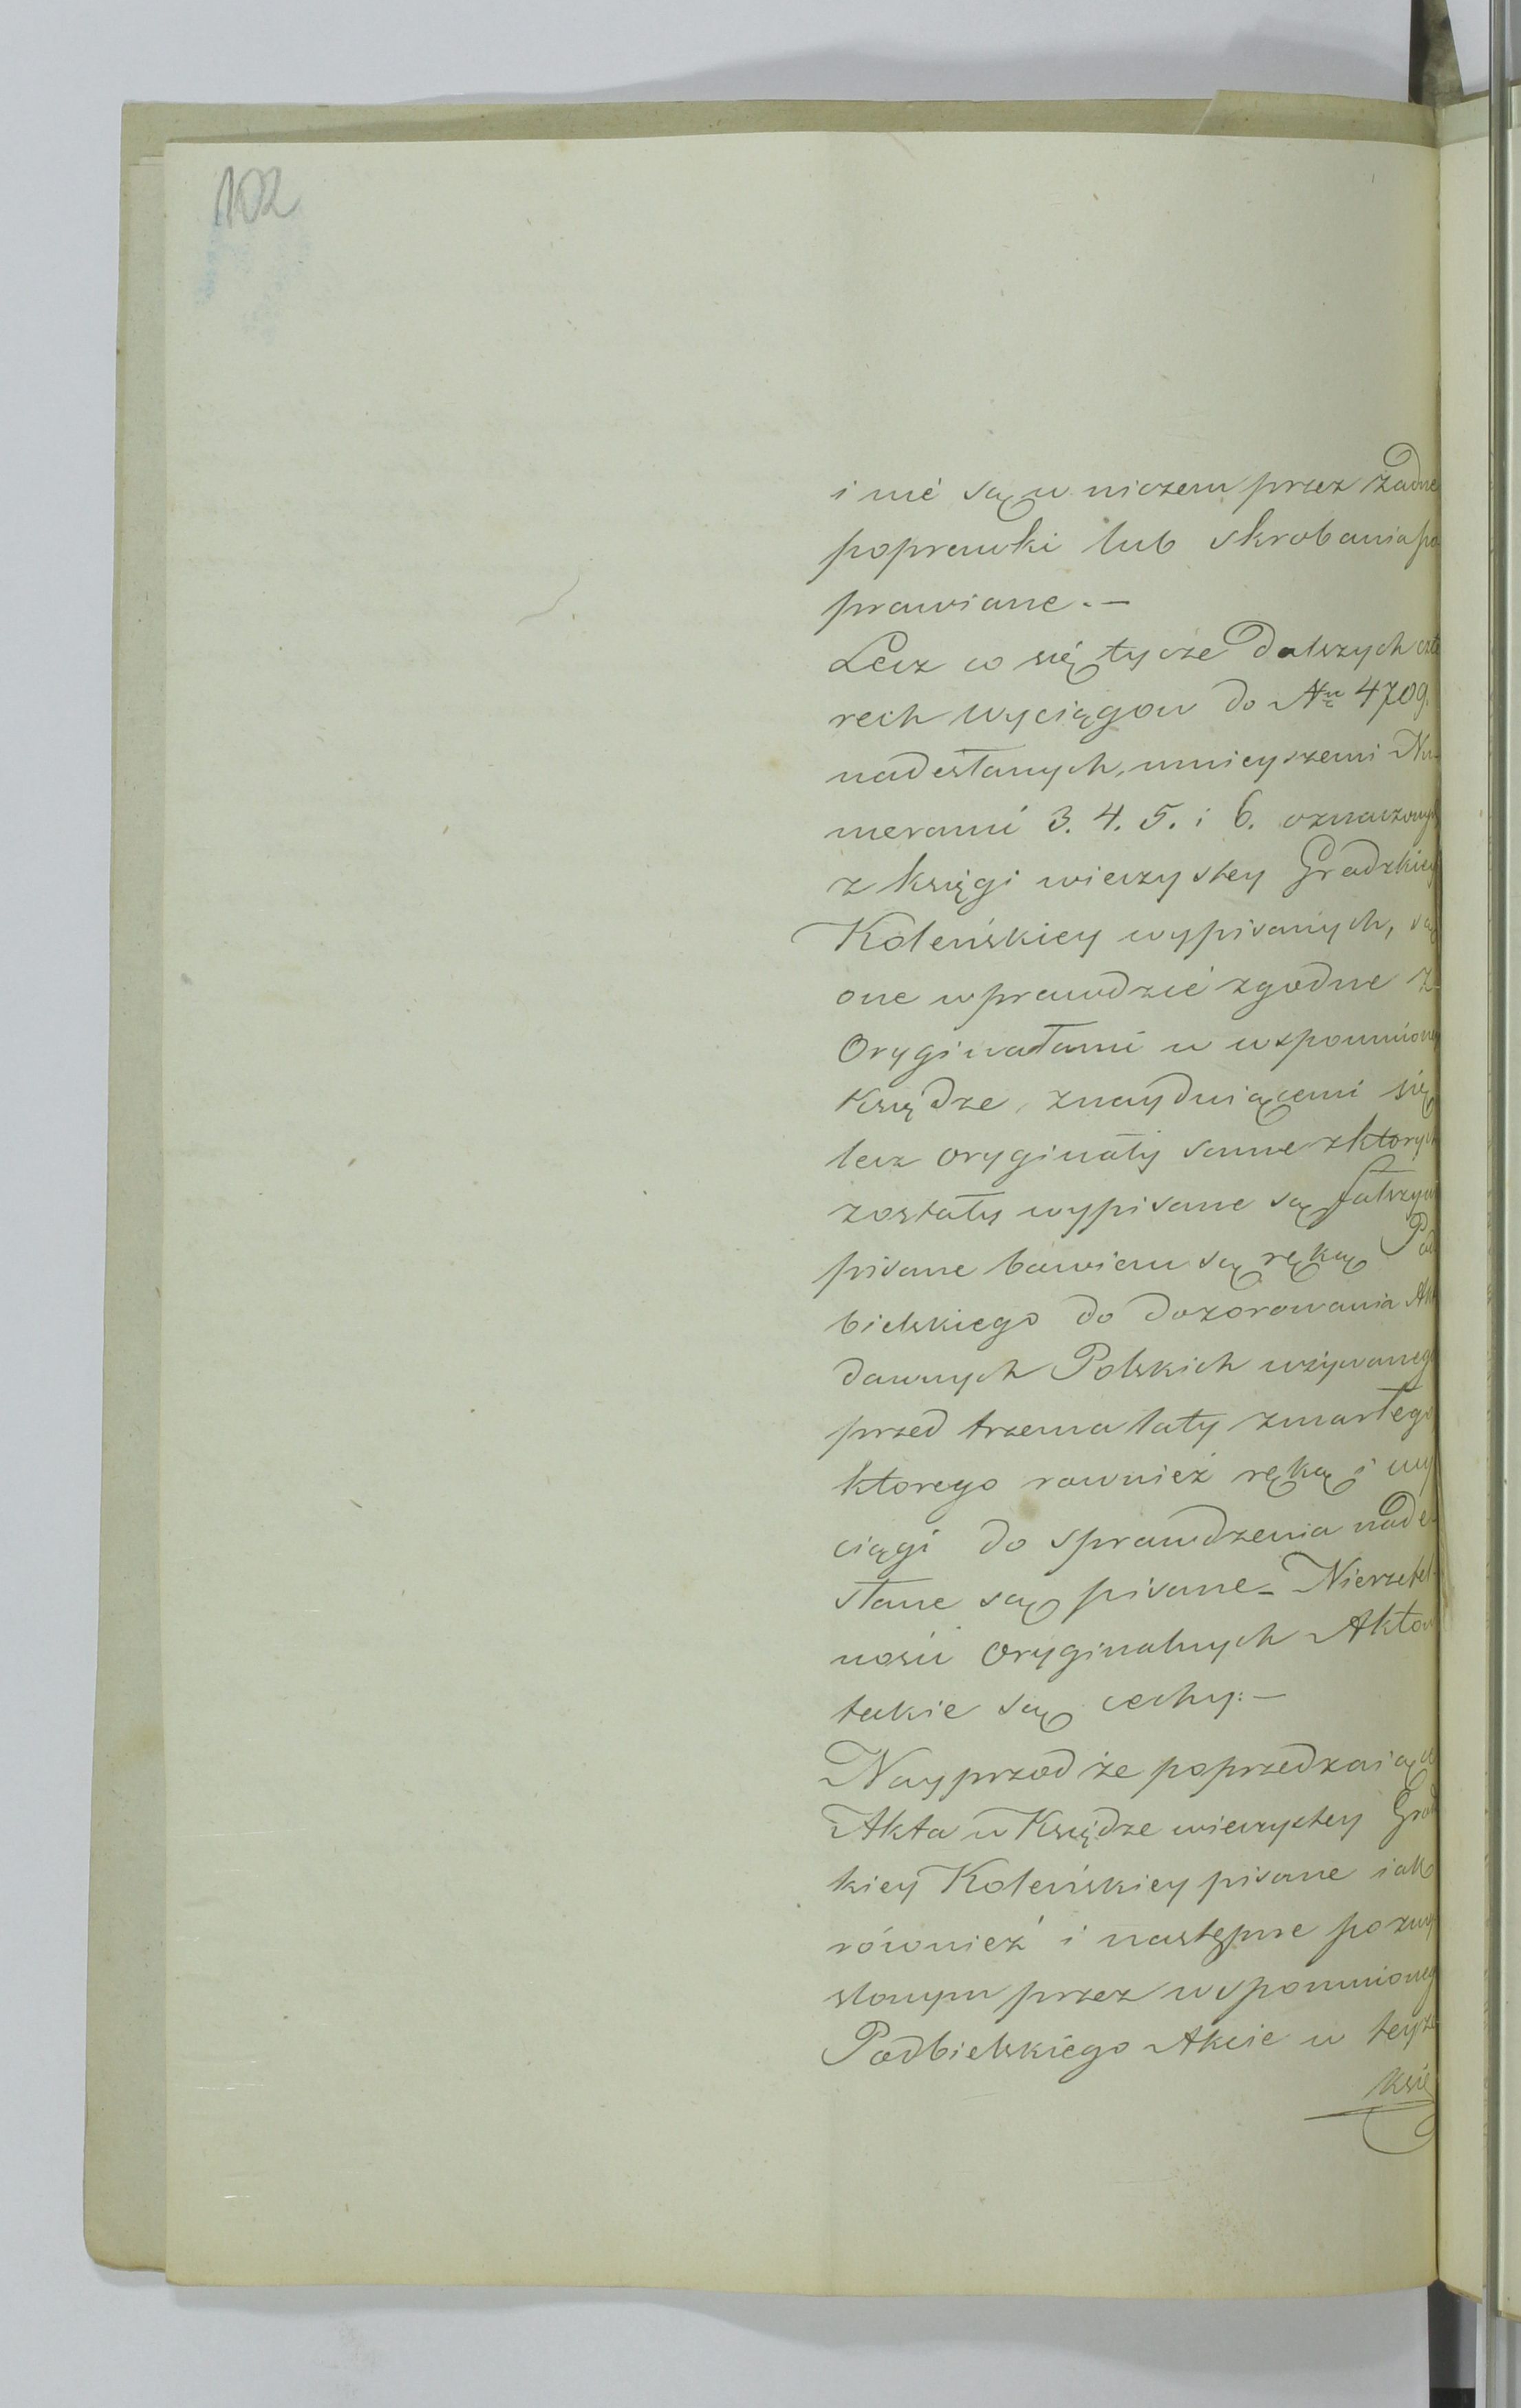 102
i nie są w niczem przez żadne
poprawki lub skrobania po
prawiane. —
Lecz co się tycze Dalszych czte
rech wyciągow do Nu 4709.
nadesłanych, mnieyszemi Nu-
merami 3. 4. 5. i 6. oznaczonych
z księgi wieczystey Gradzkiey
Koleńskiey wypisanych, są
one wprawdzie zgodne z
Oryginałami w wspomnioney
Księdze, znayduiącemi się
lecz oryginały same z ktorych
zostały wypisane są fałszywe
pisane bowiem są ręką Pod
bielskiego do dozorowania Akt
dawnych Polskich używanego
przed trzema laty zmarłego
ktorego rownież ręką i wy
ciągi do sprawdzenia nade-
słane są pisane - Nierzetel-
ności Oryginalnych Aktow
takie są cechy: —
Nayprzod że poprzedzaiące
Akta w Księdze wieczystey Grod
kiey Koleńskiey pisane iako
również i następne po zmy
slonym przez wspomnionego
Podbielskiego Akcie w teyże
Księ